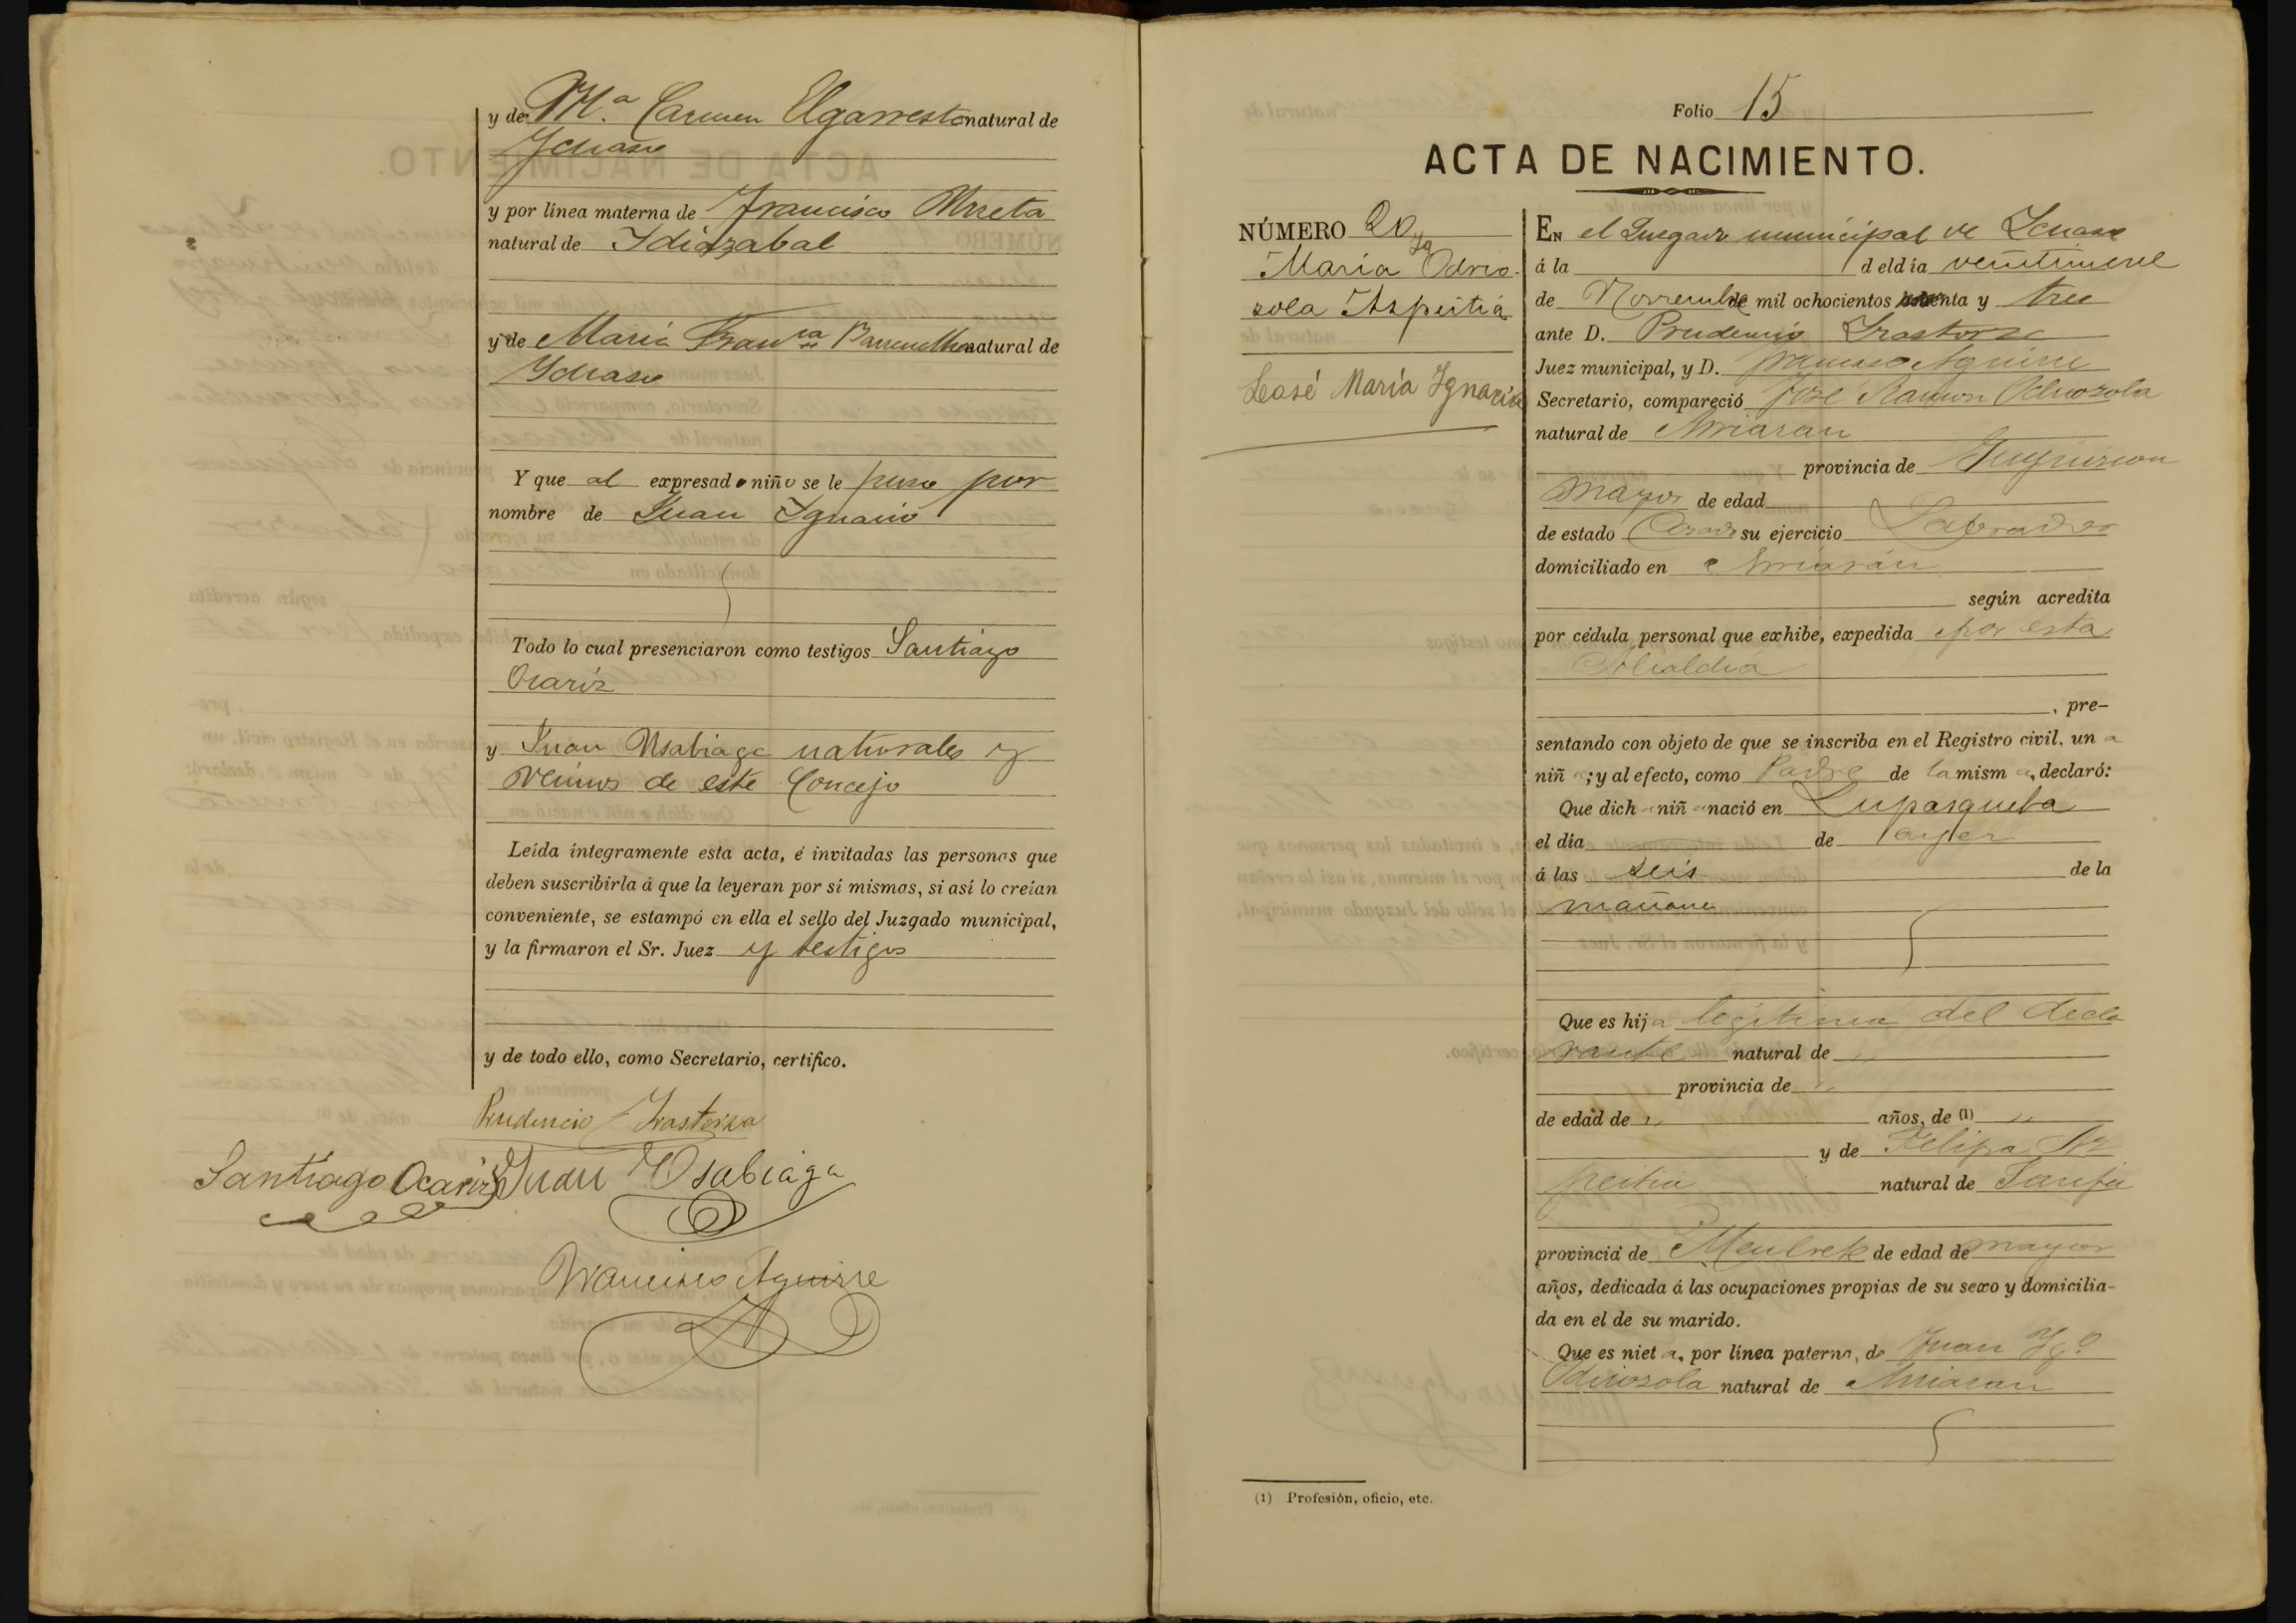 y de Mª Carmen Elgarresta natural de
Ychaso
y por línea materna de Francisco Urreta
natural de Idiazabal
y de María Franca natural de
Ychaso
Y que al expresado niño se le puso por
nombre de Juan Ignacio
Todo lo cual presenciaron como testigos Santiago
Ocariz
y Juan Usabiaga naturales y
vecinos de este Concejo
Leída íntegramente esta acta, é invitadas las personas que
deben suscribirla á que la leyeran por sí mismas, si así lo creían
conveniente, se estampó en ella el sello del Juzgado municipal,
y la firmaron el Sr. Juez y testigos
y de todo ello, como Secretario, certifico.
Prudencio Irastorza
Santiago Ocariz Juan Usabiaga
Francisco Aguirre
Folio 15
ACTA DE NACIMIENTO.
NÚMERO 20
María Igª Odrio-
zola Azpeitia
José María Ignacia
EN el Juzgado municipal de Ichaso
á la del día veintinueve
de Noviembre de mil ochocientos noventa y tres
ante D. Prudencio Irastorza
Juez municipal, y D. Francisco Aguirre
Secretario, compareció José Ramon Odriozola
natural de Arriaran
provincia de Guipúzcoa
mayor de edad
de estado Casado su ejercicio Labrador
domiciliado en Arriarán
según acredita
por cédula personal que exhibe, expedida por esta
Alcaldia
, pre-
sentando con objeto de que se inscriba en el Registro civil, una
niña; y al efecto, como Padre de la misma, declaró:
Que dicha niña nació en
el día de ayer
á las seis de la
mañana
Que es hija legítima del decla
rante natural de "
provincia de "
de edad de " años, de (1) "
y de Felipa Az
peitia natural de
provincia de de edad de mayor
años, dedicada á las ocupaciones propias de su sexo y domicilia-
da en el de su marido.
Que es nieta, por línea paterna, de Juan Ygº
Odriozola natural de Arriaran
(1) Profesión, oficio, etc.